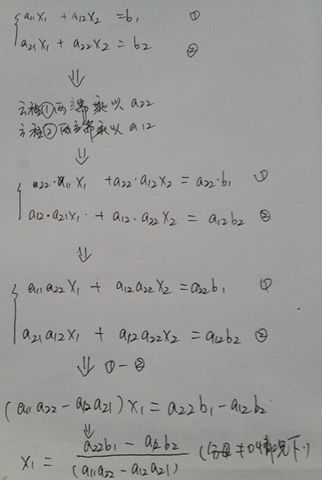 a₁₁x₁ + a₁₂x₂ = b₁ ①
a₂₁x₁ + a₂₂x₂ = b₂ ②
⇓
方程①两端乘以 a₂₂
方程②两端乘以 a₁₂
⇓
a₂₂·a₁₁x₁ + a₂₂·a₁₂x₂ = a₂₂·b₁ ①
a₁₂·a₂₁x₁ + a₁₂·a₂₂x₂ = a₁₂b₂ ②
⇓
a₁₁a₂₂x₁ + a₁₂a₂₂x₂ = a₂₂b₁ ①
a₂₁a₁₂x₁ + a₁₂a₂₂x₂ = a₁₂b₂ ②
⇓ ①-②
(a₁₁a₂₂ - a₁₂a₂₁) x₁ = a₂₂b₁ - a₁₂b₂
⇓
x₁ = (a₂₂b₁ - a₁₂b₂) / (a₁₁a₂₂ - a₁₂a₂₁) (分母≠0的情况下)